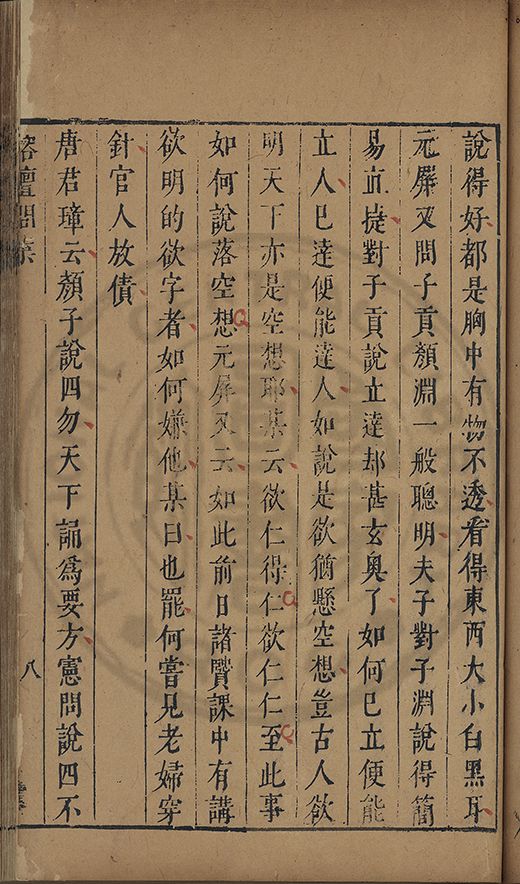 說得好都是胸中有物不透看得東西大小白黑耳
元屏又問子貢顏淵一般聰明夫子對子淵說得簡
易直捷對子貢說立達却甚玄奧了如何已立便能
立人已達便能達人如說是欲猶懸空想豈古人欲
明天下亦是空想耶某云欲仁得仁欲仁仁至此事
如何說落空想元屏又云如此前日諸贒課中有講
欲明的欲字者如何嫌他某曰也罷何嘗見老婦穿
針官人放債
唐君璋云顏子說四勿天下誦爲要方憲問說四不
榕壇問業
八